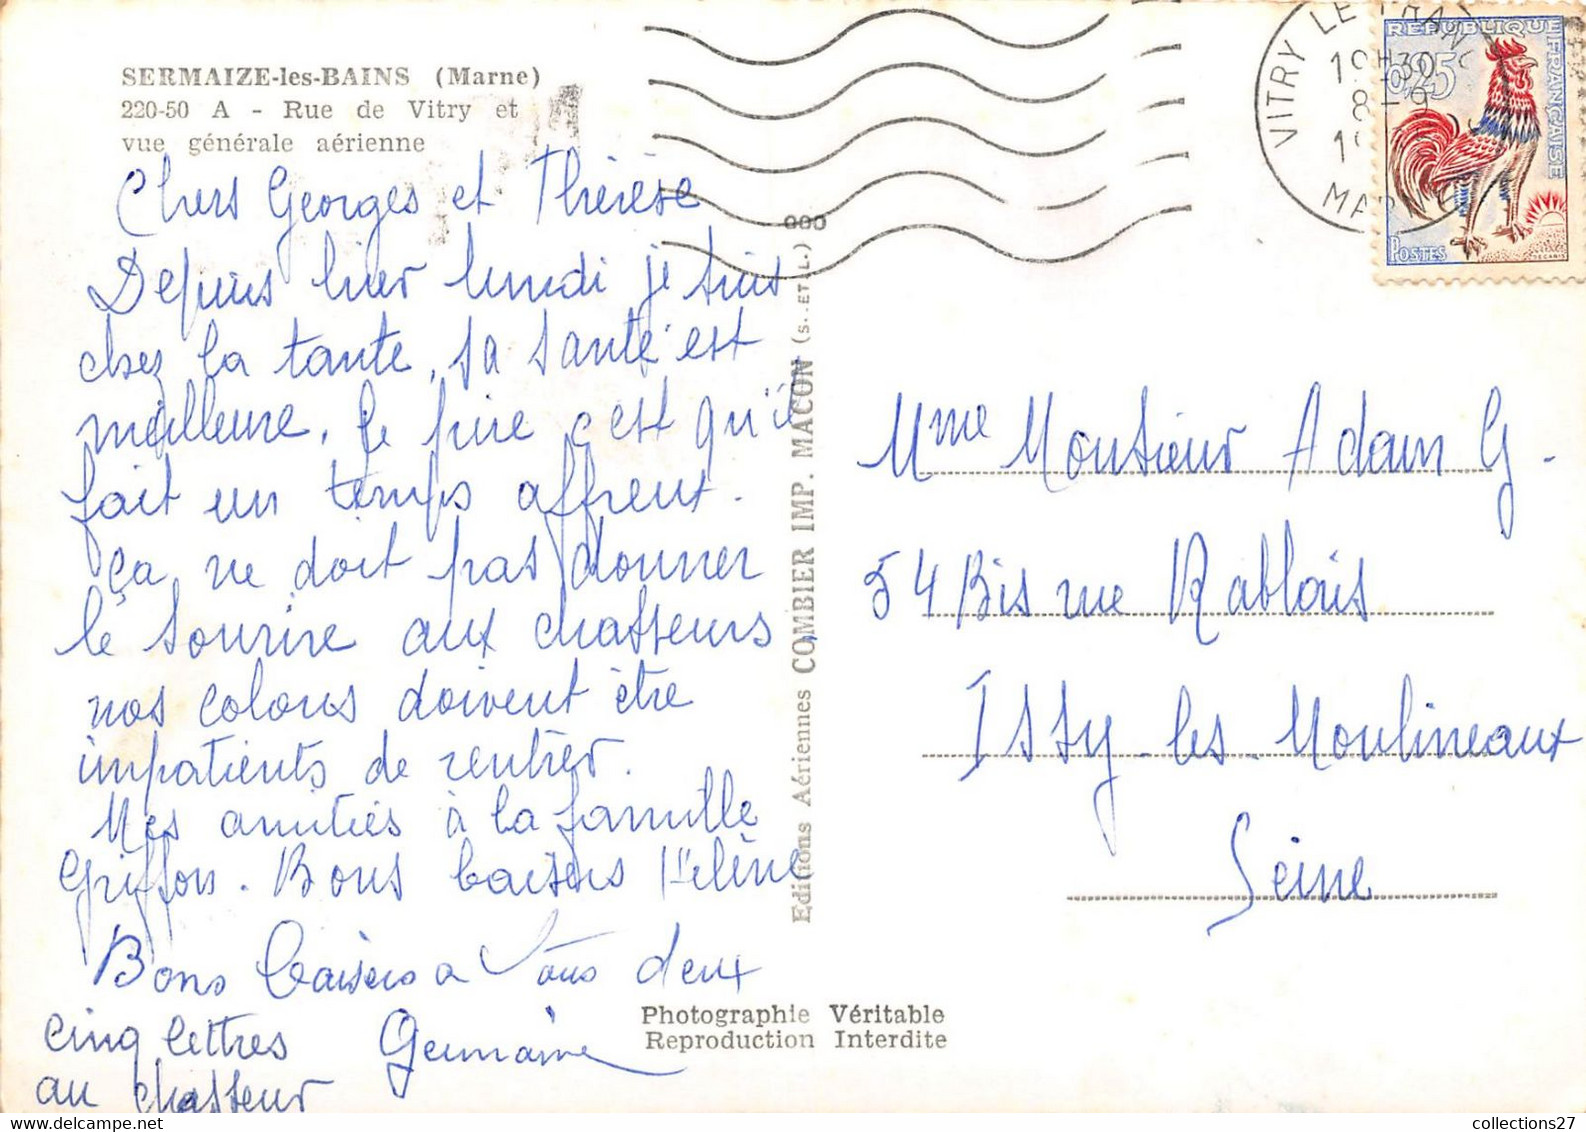 SERMAIZE-les-BAINS (Marne)
220-50 A - Rue de Vitry et
vue générale aérienne
Chers Georges et Thérèse
Depuis hier lundi je suis
chez la tante, sa santé est
meilleure. Le pire c'est qu'il
fait un temps affreux.
ça ne doit pas donner
le sourire aux chasseurs,
nos colons doivent être
impatients de rentrer.
Mes amitiés à la famille
Griffon. Bons baisers Hélène
Bons baisers a vous deux
Germaine
cinq lettres
au chasseur
Editions Aériennes COMBIER IMP. MACON (S.-ET-L.)
Photographie Véritable
Reproduction Interdite
VITRY LE FRAN
19H30
8-9
19
MARNE
REPUBLIQUE FRANÇAISE
0,25
POSTES
DECARIS
Mme Monsieur Adam G.
54 Bis rue Rablais
Issy-les-Moulineaux
Seine
collections27